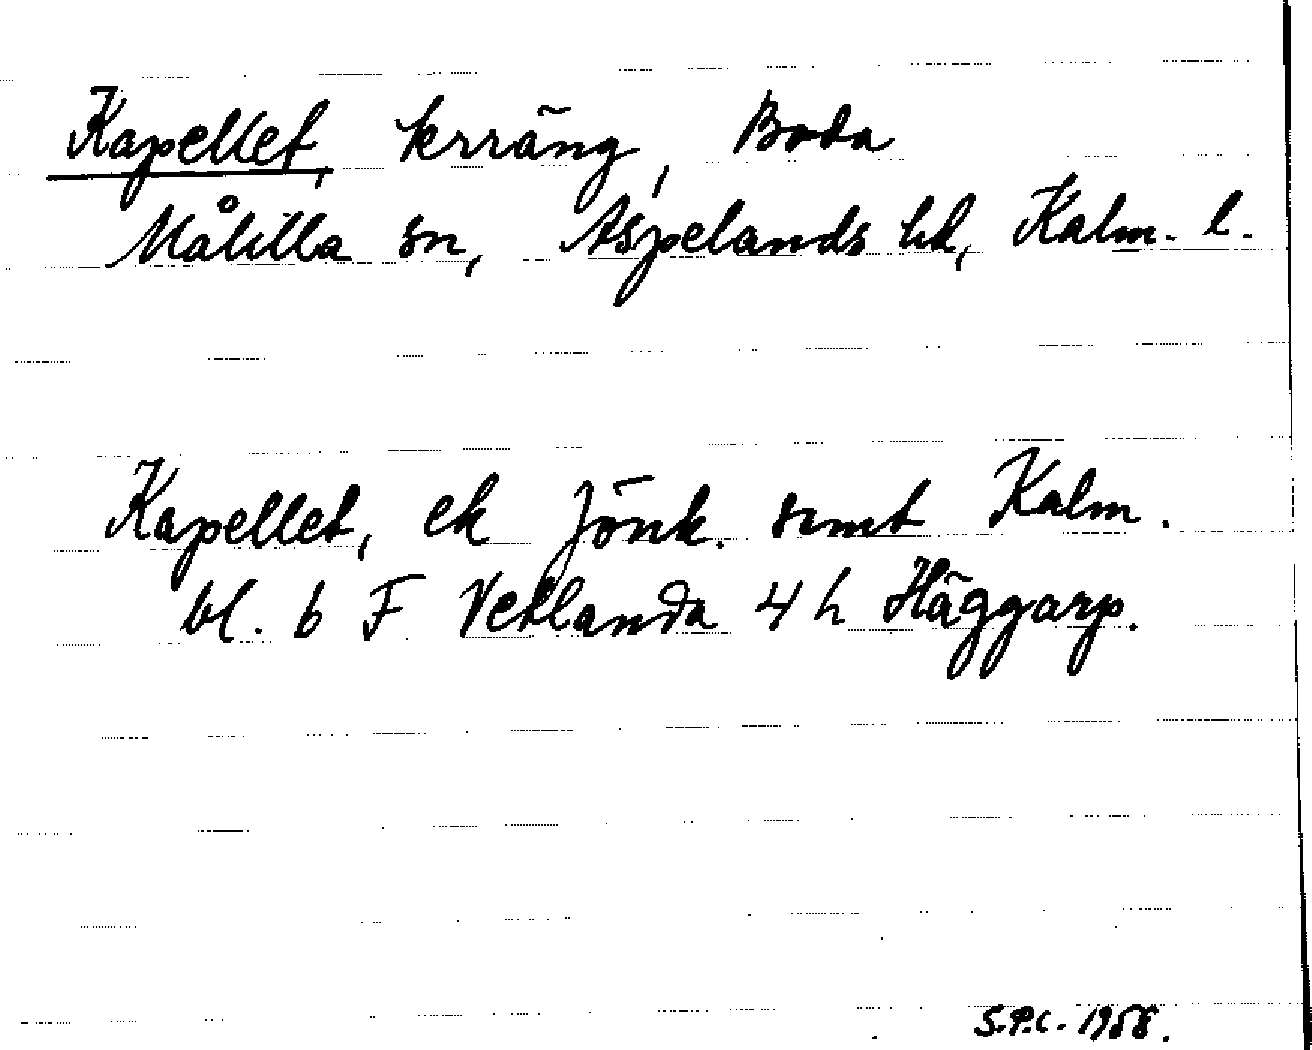 Kapellet, terräng, Boda
Målilla sn, Aspelands hd, Kalm. l.
Kapellet, ek Jönk. samt Kalm.
bl. 6 F Vetlanda 4 h Häggarp.
S.P.C. 1958.